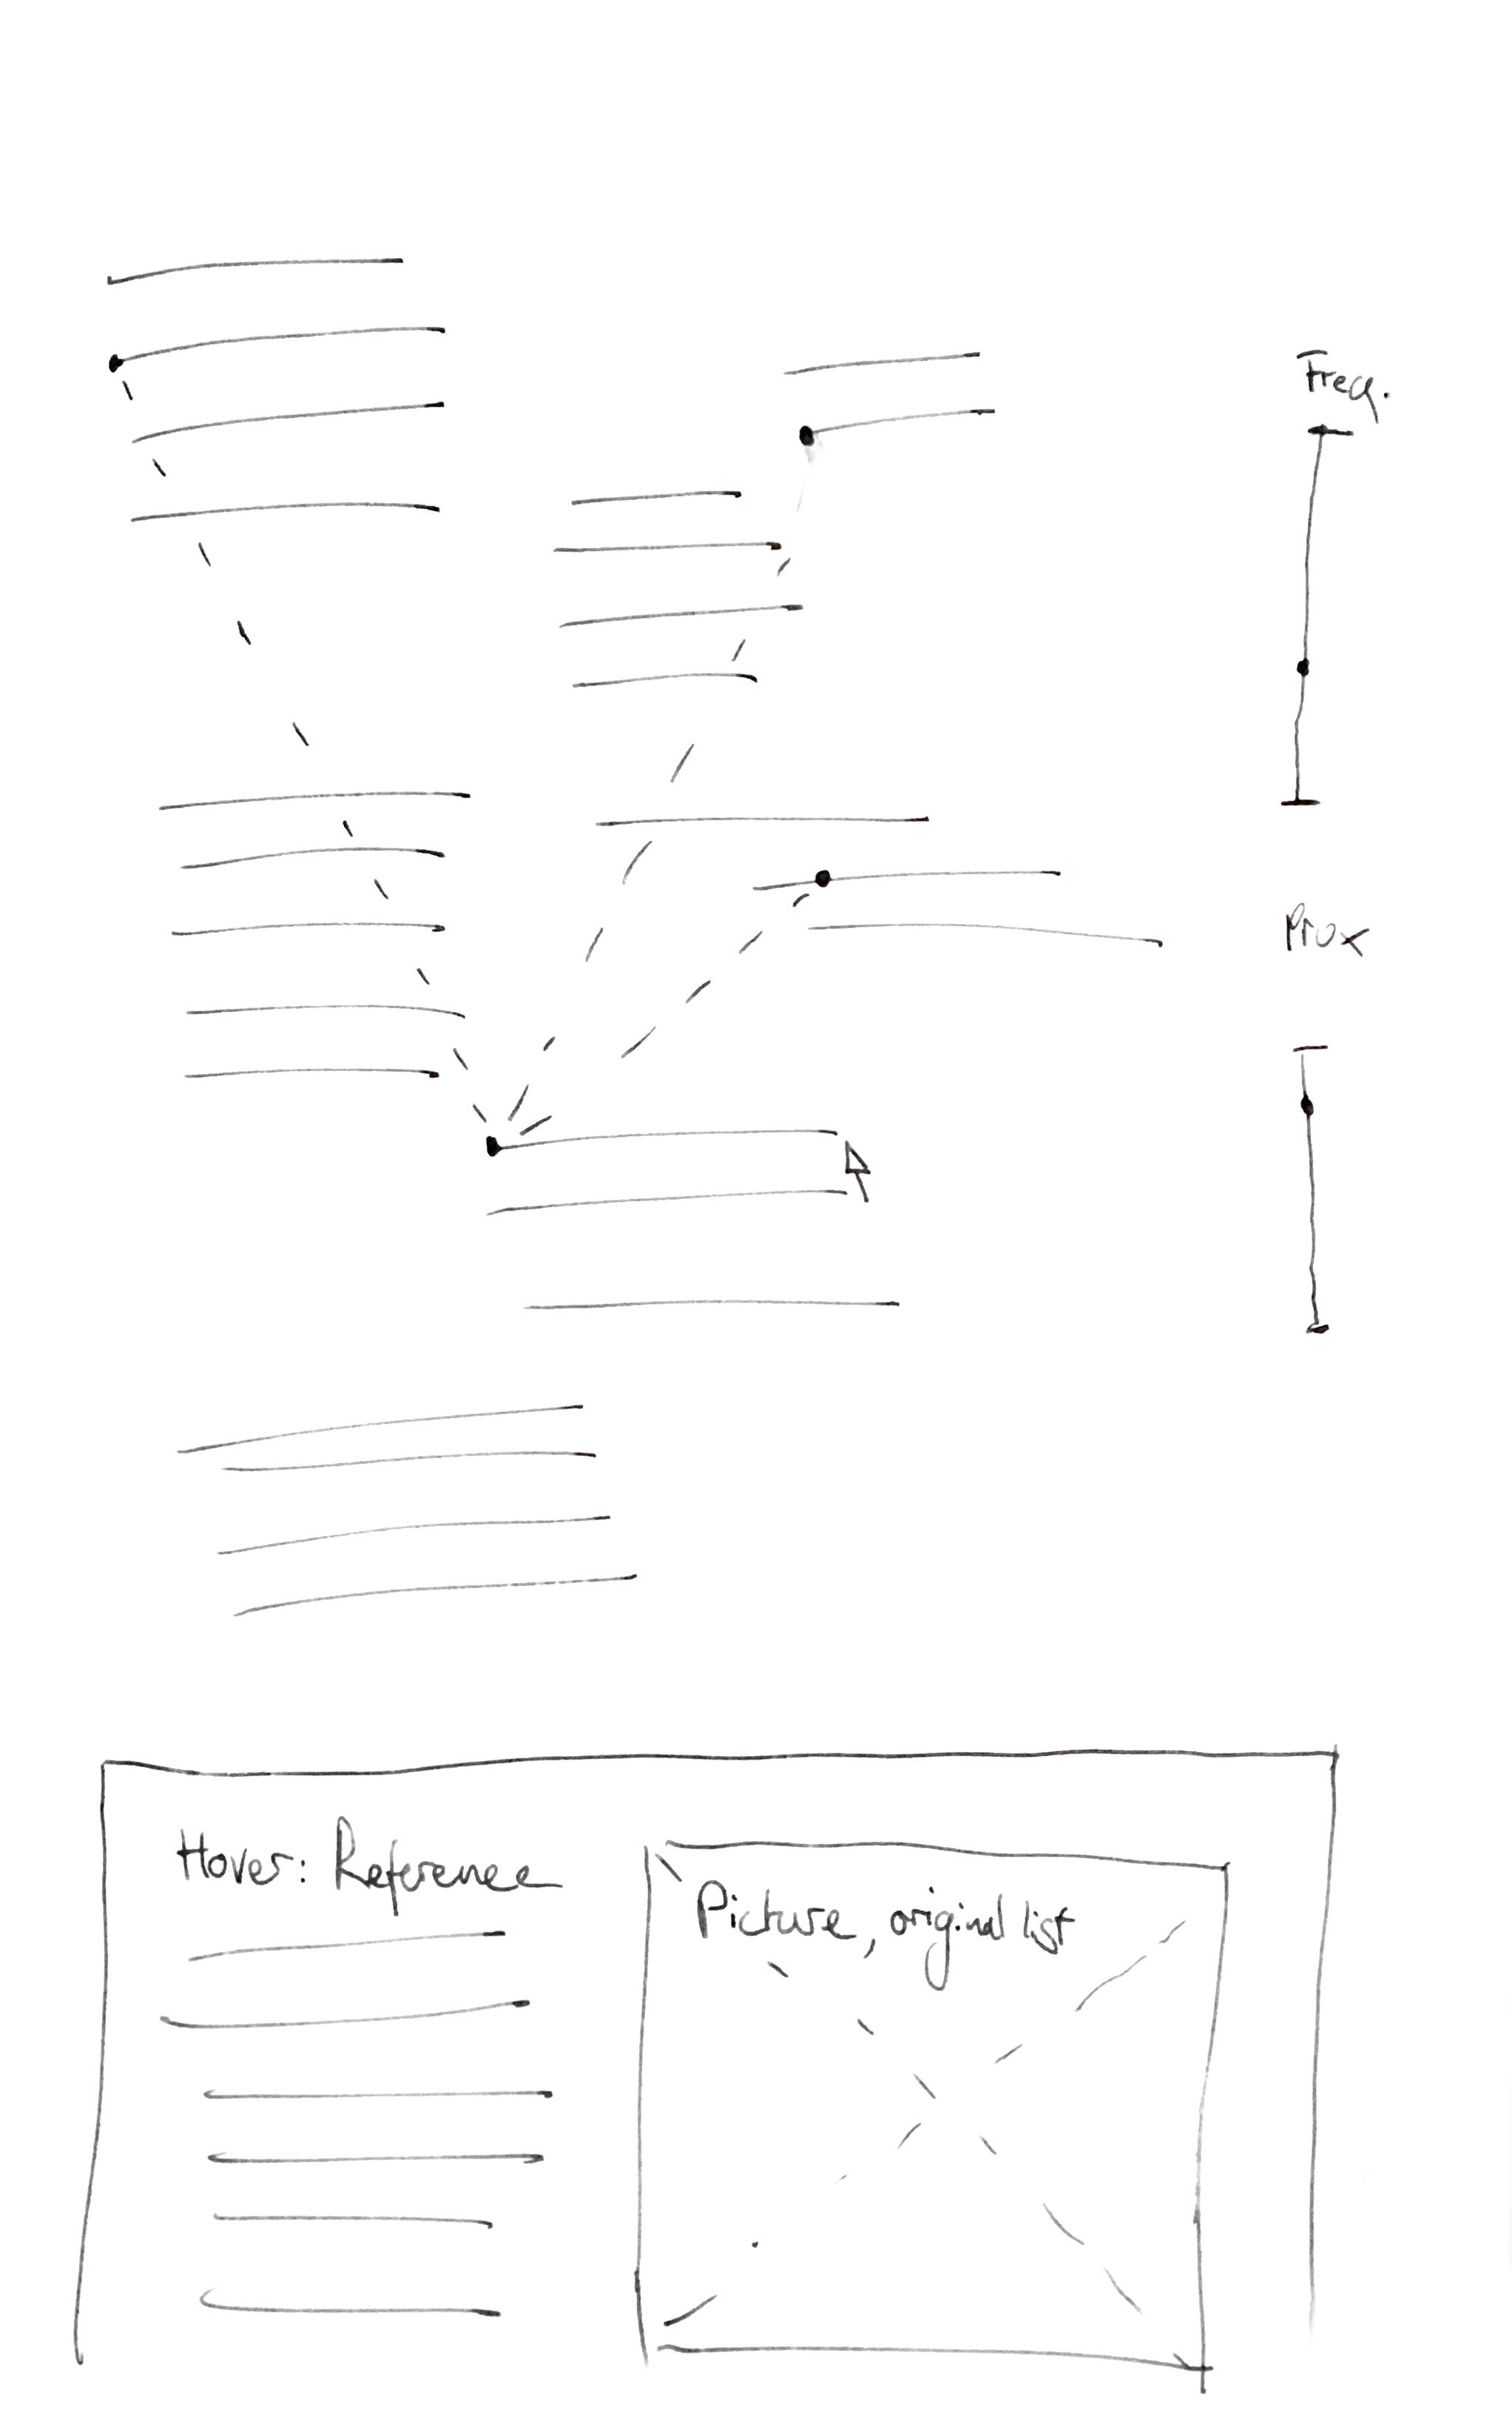 Freq.
Prox
Hover: Reference
Picture, original list